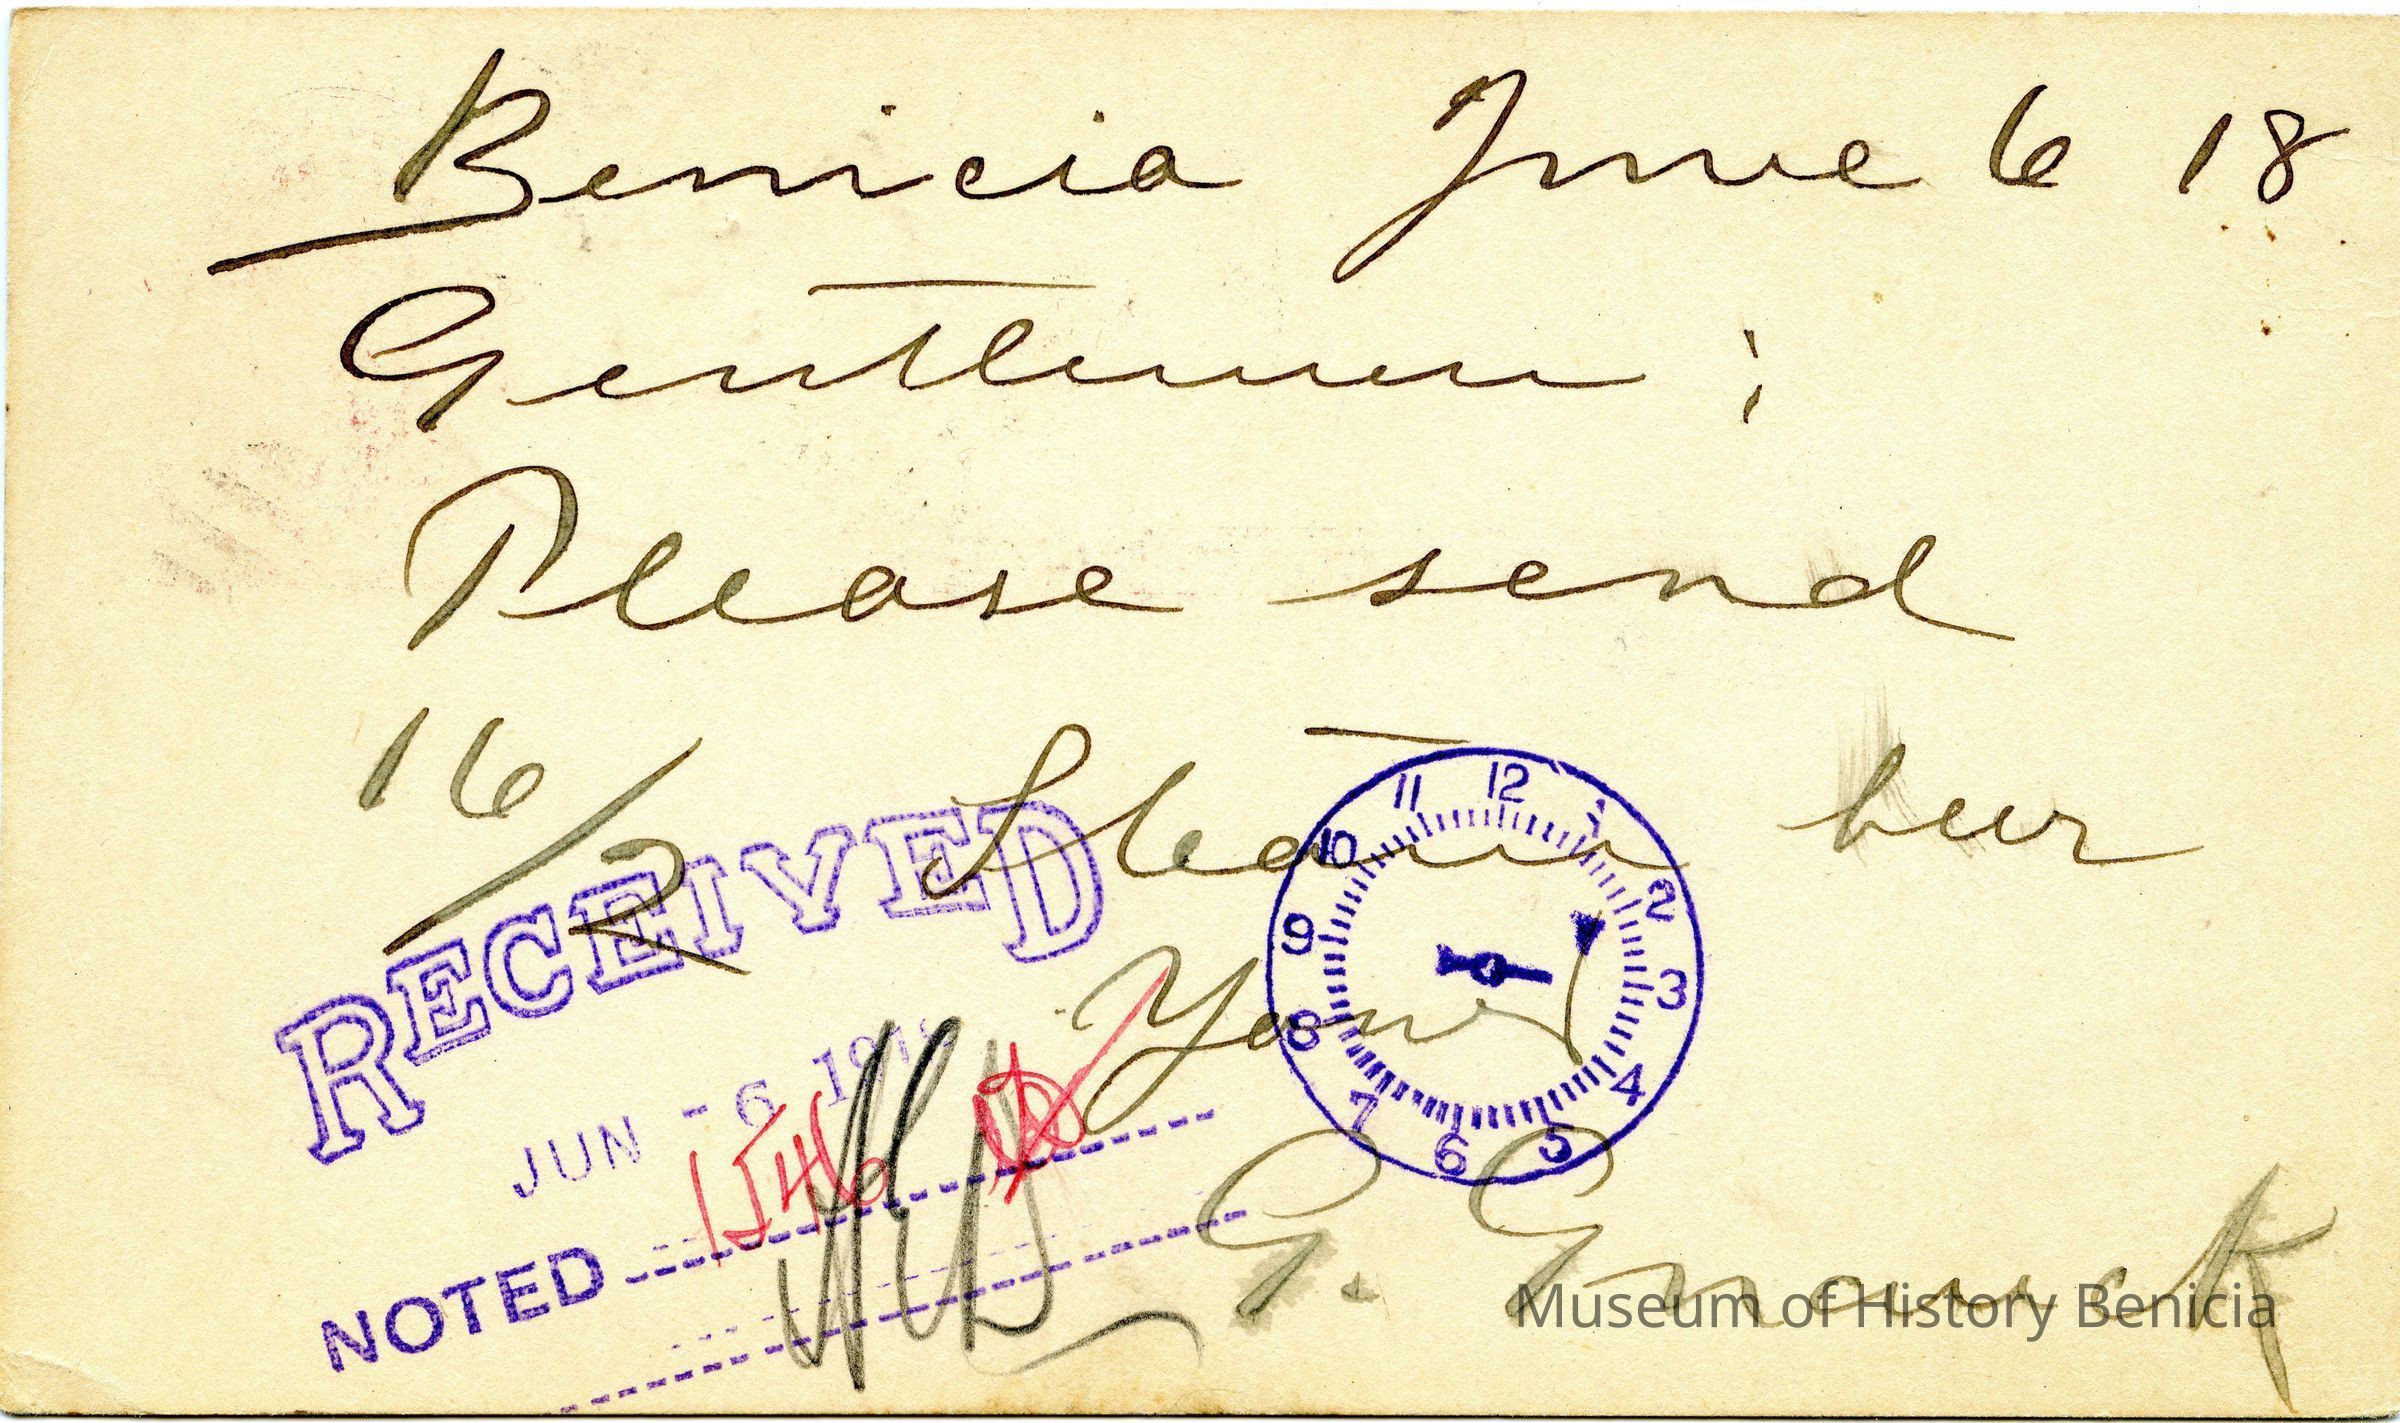 Benicia June 6 18
Gentlemen :
Please send
16/2 Steam beer
Yours
G. Gnauck
RECEIVED
JUN - 6 191
NOTED
1546
12
1
2
3
4
5
6
7
8
9
10
11
Museum of History Benicia